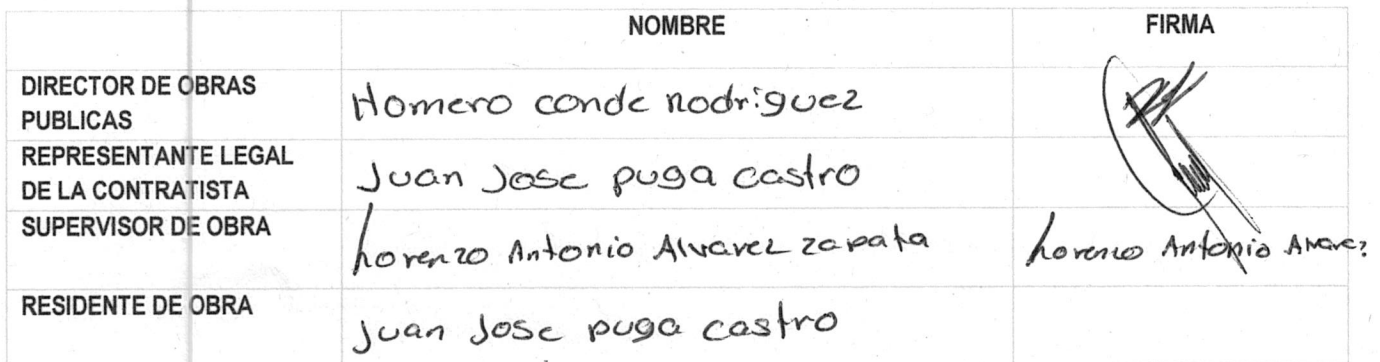 NOMBRE FIRMA
DIRECTOR DE OBRAS
PUBLICAS
Homero conde rodriguez
REPRESENTANTE LEGAL
DE LA CONTRATISTA
Juan Jose puga castro
SUPERVISOR DE OBRA
Lorenzo Antonio Alvarez zapata Lorenzo Antonio Alvarez
RESIDENTE DE OBRA
Juan Jose puga castro